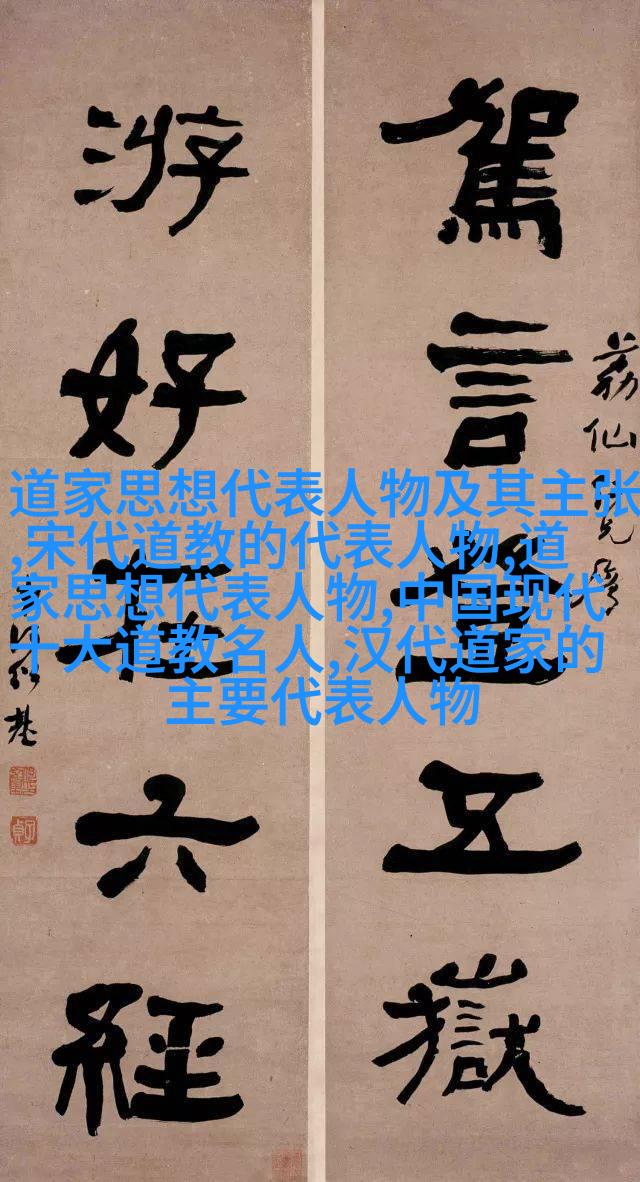 駕言登五嶽
荔仙兄屬
游好在六經
何紹基
子貞
道家思想代表人物及其主张
,宋代道教的代表人物,道
家思想代表人物,中国现代
十大道教名人,汉代道家的
主要代表人物